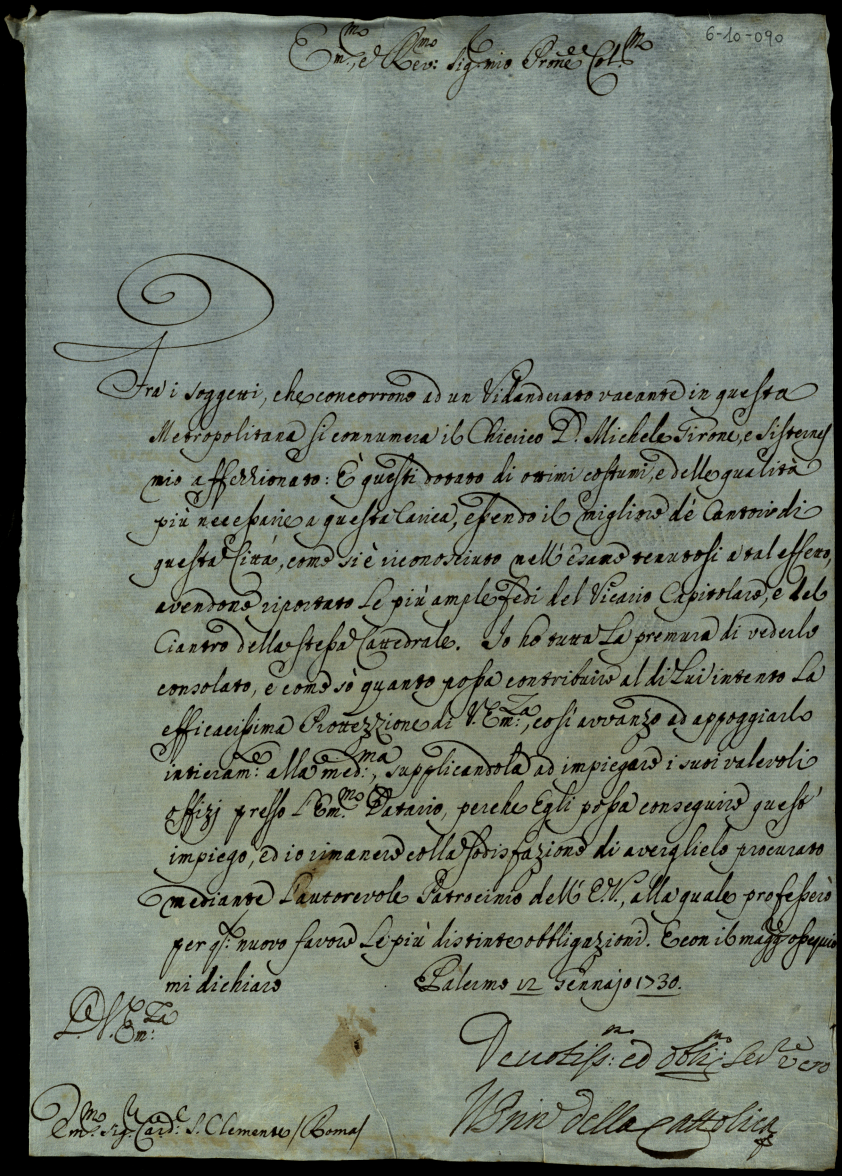 6-10-090
Em.mo, e Rev:mo Sig.r mio Prone Col.mo
Frà i soggetti, che concorrono ad un Vivanderato vacante in questa
Metropolitana si connumera il Chierico D. Michele Girone, e Sisternes
mio affezzionato: È questi dotato di ottimi costumi, e delle qualità
più necessarie a questa Carica, essendo il migliore de' Cantori di
questa Città, come si è riconosciuto nell'Esame tenutosi a tal effetto,
avendone riportato le più ample fedi del Vicario Capitolare, e del
Ciantro della stessa Cattedrale. Io hò tutta la premura di vederlo
consolato, e come sò quanto possa contribuire al di Lui intento la
efficacissima Protezzione di V. Em:za, così avvanzo ad appoggiarlo
intieram:e alla med:ma, supplicandola ad impiegare i suoi valevoli
Offizj presso l'Em.mo Datario, perche Egli possa conseguire quest'
impiego, ed io rimanere colla sodisfazione di averglielo procurato
mediante l'autorevole Patrocinio dell'E.V., alla quale professerò
per q.o nuovo favore le più distinte obbligazioni. E con il magg.r ossequio
mi dichiaro Palermo 12 Gennajo 1730.
Di V. Em:za
Devotiss:mo ed obblig:mo Ser.re vero
Em.mo Sig.r Card:e S. Clemente /Roma/
Il Prin.e della Cattolica